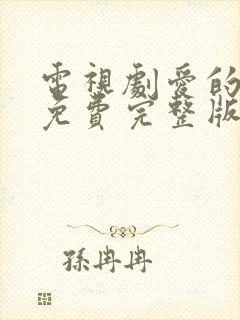 電視劇愛的
免費完整版
孫冉冉